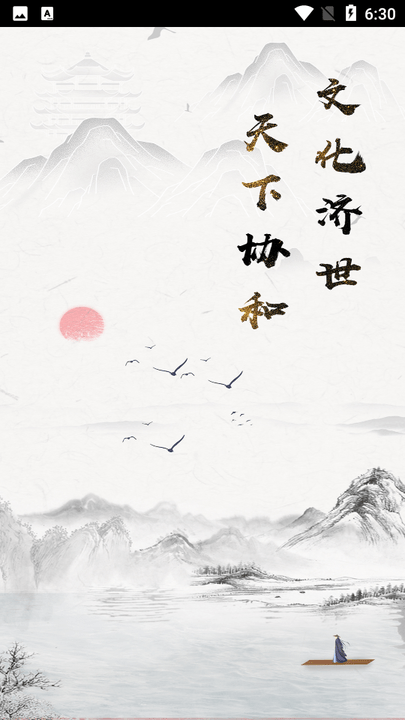 6:30
文化济世
天下协和